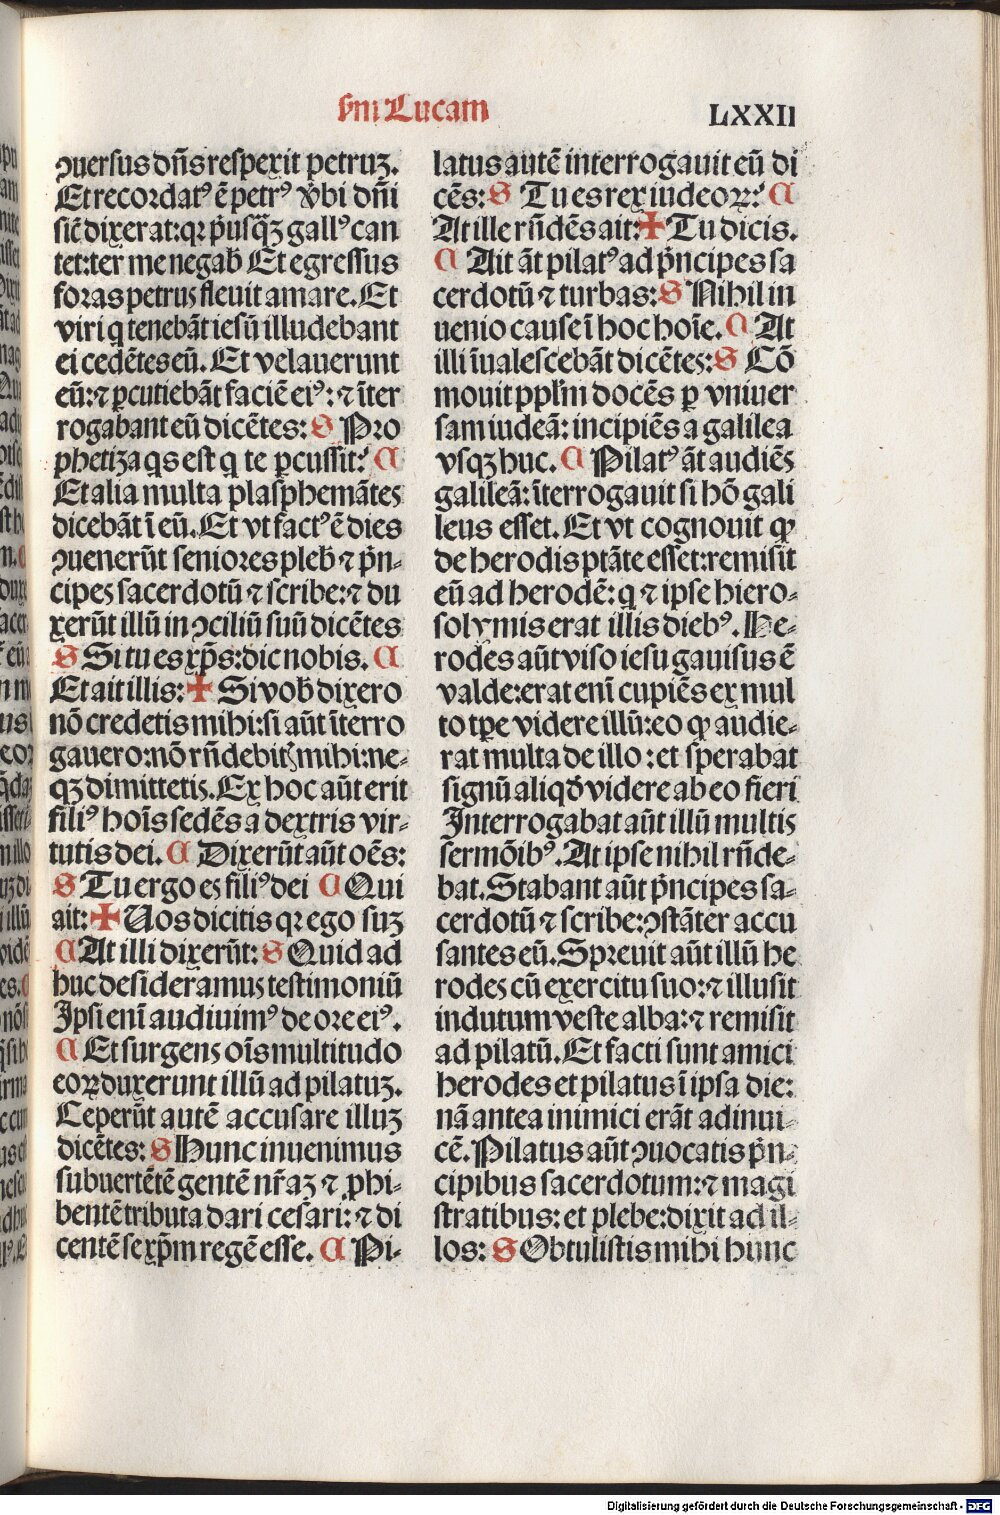 ẜm Lucam
LXXII
ꝯuersus dn̄s respexit petruꝫ.
Et recordatꝰ ē petrꝰ v̾bi dn̄i
sic̄ dixerat: qꝛ pͥusqͣꝫ gallꝰ can
tet: ter me negab̄ Et egressus
foras petrus fleuit amare. Et
viri q tenebāt iesū illudebant
ei cedētes eū. Et velauerunt
eū: ⁊ ꝑcutiebāt faciē eiꝰ: ⁊ īter
rogabant eū dicētes: S Pro
phetiza qs est q te ꝑcussit? C
Et alia multa plasphemātes
dicebāt ī eū. Et vt factꝰ ē dies
ꝯuenerūt seniores pleb̄ ⁊ pͥn-
cipes sacerdotū ⁊ scribe: ⁊ du
xerūt illū in ꝯciliū suū dicētes
S Si tu es xp̄s: dic nobis. C
Et ait illis: ✠ Si vob̄ dixero
nō credetis mihi: si aūt īterro
gauero: nō rn̄debitꝭ mihi: ne-
qꝫ dimittetis. Ex hoc aūt erit
filiꝰ hoīs sedēs a dextris vir-
tutis dei. C Dixerūt aūt oēs:
S Tu ergo es filiꝰ dei C Qui
ait: ✠ Uos dicitis qꝛ ego suꝫ
C At illi dixerūt: S Quid ad
huc desideramus testimoniū
Ipsi enī audiuimꝰ de ore eiꝰ.
C Et surgens oīs multitudo
eoꝝ duxerunt illū ad pilatuꝫ.
Ceperūt autē accusare illuꝫ
dicētes: S Hunc inuenimus
subuertētē gentē nr̄aꝫ ⁊ ꝓhi-
bentē tributa dari cesari: ⁊ di
centē se xp̄m regē esse. C Pi-
latus autē interrogauit eū di
cēs: S Tu es rex iudeoꝝ? C
At ille rn̄dēs ait: ✠ Tu dicis.
C Ait āt pilatꝰ ad pͥncipes sa
cerdotū ⁊ turbas: S Nihil in
uenio cause ī hoc hoīe. C At
illi īualescebāt dicētes: S Cō
mouit pplm̄ docēs ꝑ vniuer
sam iudeā: incipiēs a galilea
vsqꝫ huc. C Pilatꝰ āt audiēs
galileā: īterrogauit si hō gali
leus esset. Et vt cognouit ꝙ
de herodis ptāte esset: remisit
eū ad herodē: q ⁊ ipse hiero-
solymis erat illis diebꝰ. He-
rodes aūt viso iesu gauisus ē
valde: erat enī cupiēs ex mul
to tꝑe videre illū: eo ꝙ audie-
rat multa de illo: et sperabat
signū aliqd̾ videre ab eo fieri
Interrogabat aūt illū multis
sermōibꝰ. At ipse nihil rn̄de-
bat. Stabant aūt pͥncipes sa-
cerdotū ⁊ scribe: ꝯstāter accu
santes eū. Spreuit aūt illū he
rodes cū exercitu suo: ⁊ illusit
indutum veste alba: ⁊ remisit
ad pilatū. Et facti sunt amici
herodes et pilatus ī ipsa die:
nā antea inimici erāt adinui-
cē. Pilatus aūt ꝯuocatis pͥn-
cipibus sacerdotum: ⁊ magi
stratibus: et plebe: dixit ad il-
los: S Obtulistis mihi hunc
Digitalisierung gefördert durch die Deutsche Forschungsgemeinschaft - DFG